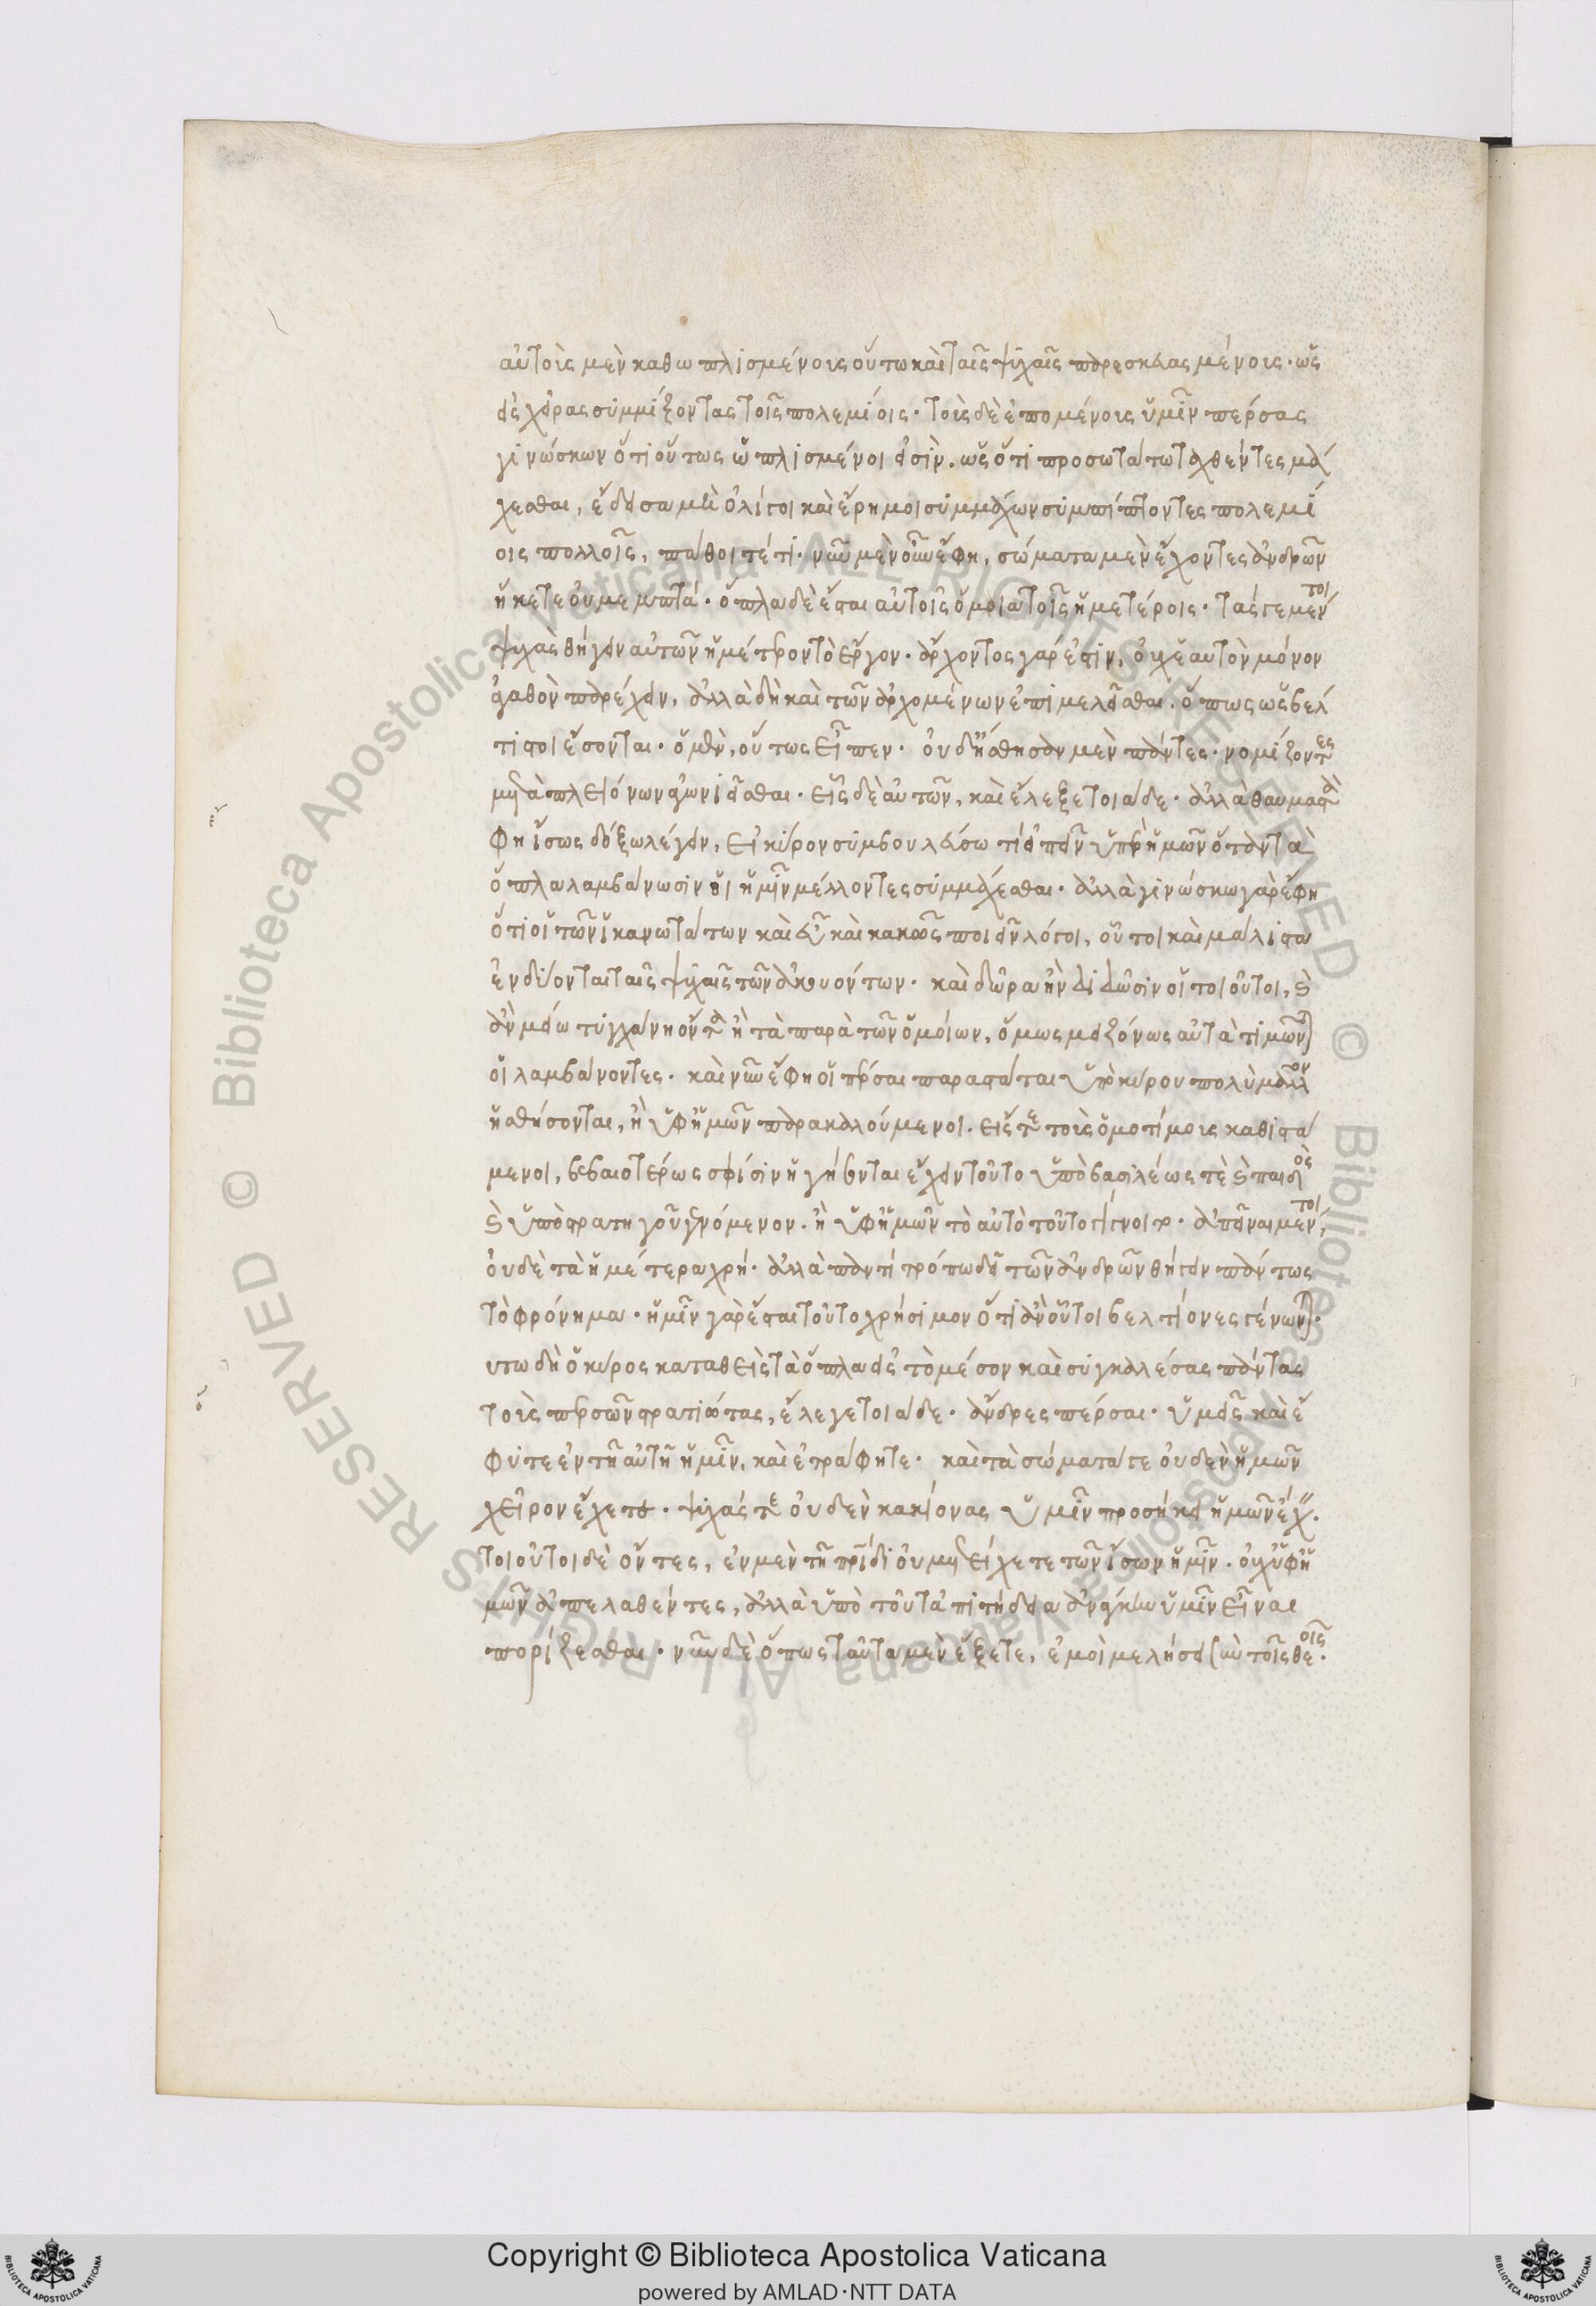 αὐτοὺς μὲν καθωπλισμένους οὕτω καὶ ταῖς ψυχαῖς παρεσκευασμένους· ὡς
εἰς χεῖρας συμμίξοντας τοῖς πολεμίοις· τοὺς δὲ ἑπομένους ὑμῖν πέρσας
γινώσκων ὅτι οὕτως ὡπλισμένοι εἰσὶν. ὡς ὅτι προσωτάτω ταχθέντες μά
χεσθαι, ἔδεισα μὴ ὀλίγοι καὶ ἔρημοι συμμάχων συμπίπτοντες πολεμί
οις πολλοῖς, πάθοιτέ τι· νῦν μὲν οὖν ἔφη, σώματα μὲν ἔχοντες ἀνδρῶν
ἥκετε οὐ μεμπτά· ὅπλα δὲ ἔσται αὐτοῖς ὅμοια τοῖς ἡμετέροις· τάς γε μέντοι
ψυχὰς θήγειν αὐτῶν ἡμέτερον τὸ ἔργον· ἄρχοντος γάρ ἐστιν, οὐχ ἑαυτὸν μόνον
ἀγαθὸν παρέχειν, ἀλλὰ δὴ καὶ τῶν ἀρχομένων ἐπιμελεῖσθαι, ὅπως ὡς βέλ
τιστοι ἔσονται· ὁ μὲν, οὕτως εἶπεν· οἱ δ' ἥσθησαν μὲν πάντες· νομίζοντες
μετὰ πλειόνων ἀγωνιεῖσθαι· εἷς δὲ αὐτῶν, καὶ ἔλεξε τοιάδε· ἀλλὰ θαυμαστὰ
φη ἴσως δόξω λέγειν, εἰ κύρον συμβουλεύσω τι εἰπεῖν ὑπὲρ ἡμῶν ὅταν τὰ
ὅπλα λαμβάνωσιν οἱ ἡμῖν μέλλοντες συμμάχεσθαι· ἀλλὰ γινώσκω γὰρ ἔφη
ὅτι οἱ τῶν ἱκανωτάτων καὶ εὖ καὶ κακῶς ποιεῖν λόγοι, οὗτοι καὶ μάλιστα
ἐνδύονται ταῖς ψυχαῖς τῶν ἀκουόντων· καὶ δῶρα ἢν διδῶσιν οἱ τοιοῦτοι, καὶ
ἂν μείω τυγχάνῃ ὄντα ἢ τὰ παρὰ τῶν ὁμοίων, ὅμως μειζόνως αὐτὰ τιμῶνται
οἱ λαμβάνοντες· καὶ νῦν ἔφη οἱ πέρσαι παραστάται ὑπὸ κύρου πολὺ μᾶλλον
ἡσθήσονται, ἢ ὑφ' ἡμῶν παρακαλούμενοι. εἴς τε τοὺς ὁμοτίμους καθιστά
μενοι, βεβαιοτέρως σφίσιν ἡγήσονται ἔχειν τοῦτο ὑπὸ βασιλέως τὲ καὶ παιδὸς
καὶ ὑπὸ στρατηγοῦ γενόμενον· ἢ ὑφ' ἡμῶν τὸ αὐτὸ τοῦτο γίγνοιτο· ἀπεῖναι μέντοι
οὐδὲ τὰ ἡμέτερα χρή· ἀλλὰ παντὶ τρόπω δεῖ τῶν ἀνδρῶν θήγειν πάντως
τὸ φρόνημα· ἡμῖν γὰρ ἔσται τοῦτο χρήσιμον ὅτι ἂν οὗτοι βελτίονες γένωνται·
υτω δὴ ὁ κύρος καταθεὶς τὰ ὅπλα εἰς τὸ μέσον καὶ συγκαλέσας πάντας
τοὺς περσῶν στρατιώτας, ἔλεγε τοιάδε· ἄνδρες πέρσαι· ὑμεῖς καὶ ἔ
φυτε ἐν τῇ αὐτῇ ἡμῖν, καὶ ἐτράφητε· καὶ τὰ σώματά τε οὐδὲν ἡμῶν
χεῖρον ἔχετε· ψυχάς τε οὐδὲν κακίονας ὑμῖν προσήκει ἡμῶν ἔχειν.
τοιοῦτοι δὲ ὄντες, ἐν μὲν τῇ πατρίδι οὐ μετείχετε τῶν ἴσων ἡμῖν· οὐχ ὑφ' ἡ
μῶν ἀπελαθέντες, ἀλλὰ ὑπὸ τοῦ τἀπιτήδεια ἀνάγκην ὑμῖν εἶναι
πορίζεσθαι· νῦν δὲ ὅπως ταῦτα μὲν ἕξετε, ἐμοὶ μελήσει σὺν τοῖς θεοῖς·